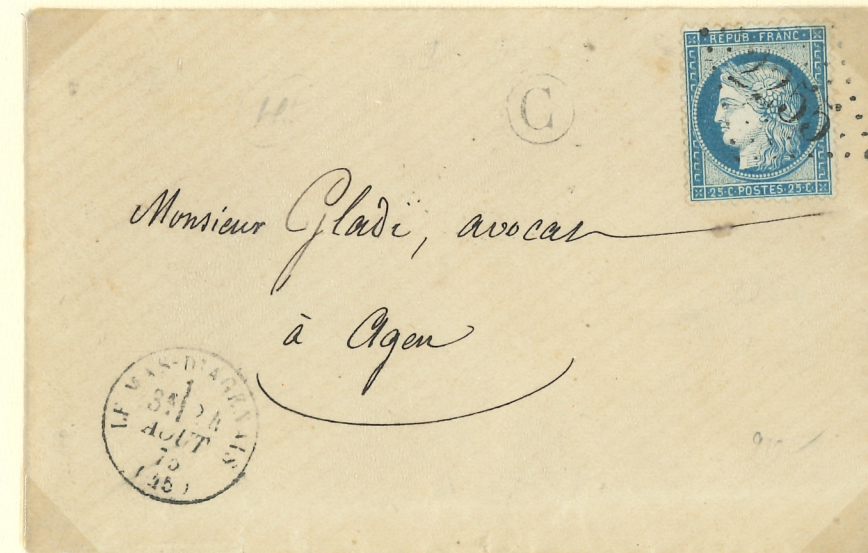 REPUB · FRANC ·
2255
25·C·POSTES·25·C
C
Monsieur Gladi, avocat
à Agen
LE MAS-D'AGENAIS
1
AOUT
75
(45)